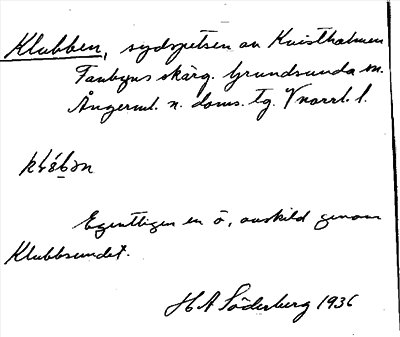 Klubben, sydspetsen av Kvistholmen
Faubyns skärg. Grundsunda sn.
Ångerml. n. doms. tg. Vnorrl. l.
Egentligen en ö, avskild genom
Klubbsundet.
H A Söderberg 1936